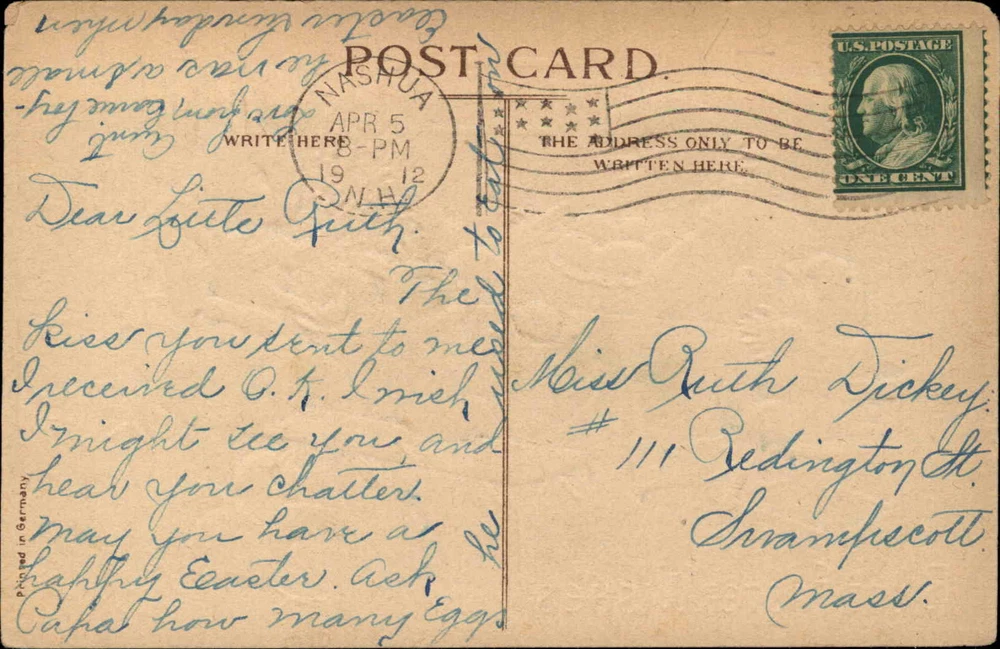 POST CARD.
NASHUA
APR 5
8-PM
19 12
N.H.
U.S. POSTAGE
ONE CENT
WRITE HERE
THE ADDRESS ONLY TO BE
WRITTEN HERE.
Dear Little Ruth.
The
kiss you sent to me
I received O.K. I wish
I might see you, and
hear you chatter.
May you have a
happy Easter. Ask
Papa how many Eggs
he used to eat on
Easter Sunday when
he was a small
boy-
Love from
Aunt
Miss Ruth Dickey.
# 111 Redington St.
Swampscott
Mass.
Printed in Germany